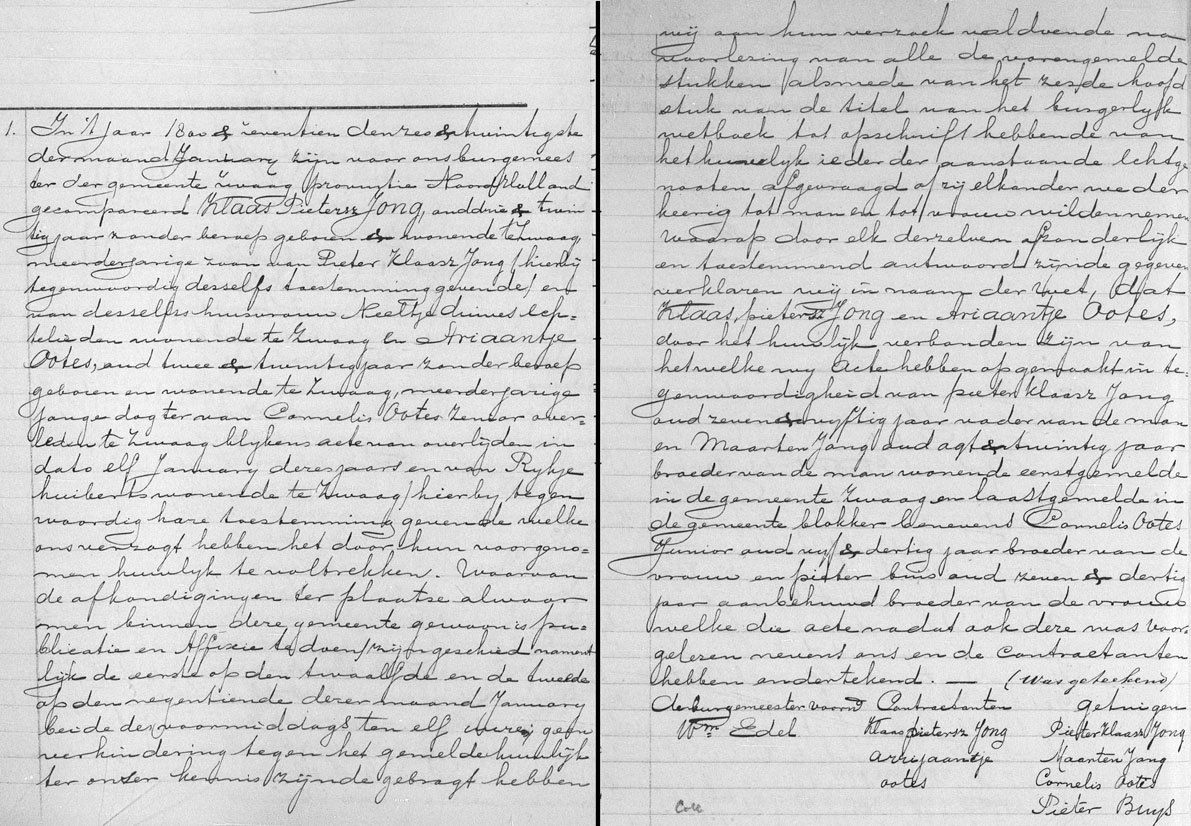 1. In 't jaar 1800 & zeventien den zes & twintigste
der maand January zijn voor ons burgemees
ter der gemeente zwaag provintie Noord Holland
gecompareerd Klaas Pietersz Jong, oud drie & twin
tig jaar zonder beroep geboren & wonende te Zwaag,
meerderjarige zoon van Pieter Klaasz Jong / hierbij
tegenwoordig desselfs toestemming gevende / en
van desselfs huisvrouw Neeltje diewes Ech=
telieden wonende te Zwaag En Ariaantje
Ootes, oud twee & twintig jaar zonder beroep
geboren en wonende te Zwaag, meerderjarige
jonge dogter van Cornelis Ootes Zenior over=
leden te Zwaag blykens acte van overlijden in
dato elf January dezes jaars en van Rykje
huiberts wonende te Zwaag / hierby tegen
woordig hare toestemming gevende welke
ons verzogt hebben het door hun voorgeno=
men huwlyk te voltrekken. Waarvan
de afkondigingen ter plaatse alwaar
men binnen deze gemeente gewoon is pu=
blicatie en Affixie te doen / zijn geschied nament
lijk de eerste op den twaalfde en de tweede
op den negentiende dezer maand January
beide des voormiddags ten elf uure, geen
verhindering tegen het gemelde huwlijk
ter onzer kennis zijnde gebragt hebben
wij aan hun verzoek voldoende na
voorlezing van alle de vorengemelde
stukken / alsmede van het zesde hoofd
stuk van de titel van het burgerlijk
wetboek tot opschrift hebbende van
het huwelyk ieder der aanstaande Echtge
nooten afgevraagd of zij elkander weder
keerig tot man en tot vrouw wilden nemen
waarop door elk derzelven afzonderlijk
en toestemmend antwoord zijnde gegeven
verklaren wij in naam der wet, dat
Klaas pietersz Jong en Ariaantje Ootes,
door het huwlijk verbonden zijn van
het welke wy Acte hebben opgemaakt in te=
genwoordigheid van pieter klaasz Jong
oud zeven & vyftig jaar vader van de man
en Maarten Jong oud agt & twintig jaar
broeder van de man wonende eerstgemelde
in de gemeente Zwaag en laastgemelde in
de gemeente blokker benevens Cornelis Ootes
Junior oud vyf & dertig jaar broeder van de
vrouw en pieter buis oud zeven & dertig
jaar aanbehuwd broeder van de vrouw
welke die acte nadat ook deze was voor
gelezen nevens ons en de Contractanten
hebben ondertekend. — (Was geteekend)
De burgemeester voornd Contractanten getuigen
Wm Edel Klaas pietersz Jong Pieter Klaasz Jong
Arrijaantje Maarten Jong
ootes Cornelis Ootes
Pieter Buys
Coll